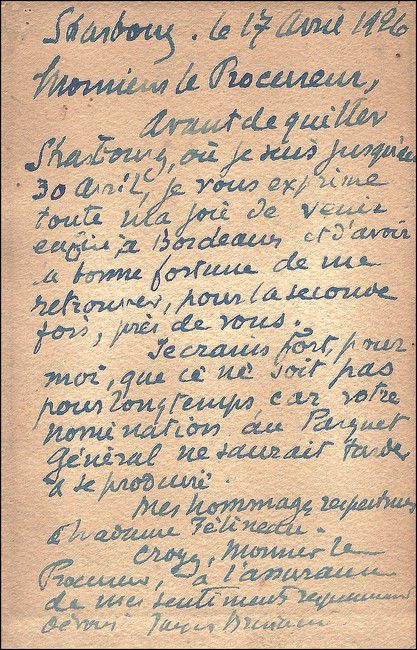 Strasbourg. le 17 Avril 1926
Monsieur le Procureur,
Avant de quitter
Strasbourg, où je suis jusqu'au
30 Avril, je vous exprime
toute ma joie de venir
enfin à Bordeaux et d'avoir
la bonne fortune de me
retrouver, pour la seconde
fois, près de vous.
Je crains fort, pour
moi, que ce ne soit pas
pour longtemps car votre
nomination au Parquet
Général ne saurait tarder
à se produire.
Mes hommages respectueux
à Madame Félineau.
Croyez, Monsieur le
Procureur, à l'assurance
de mes sentiments respectueusement
dévoués